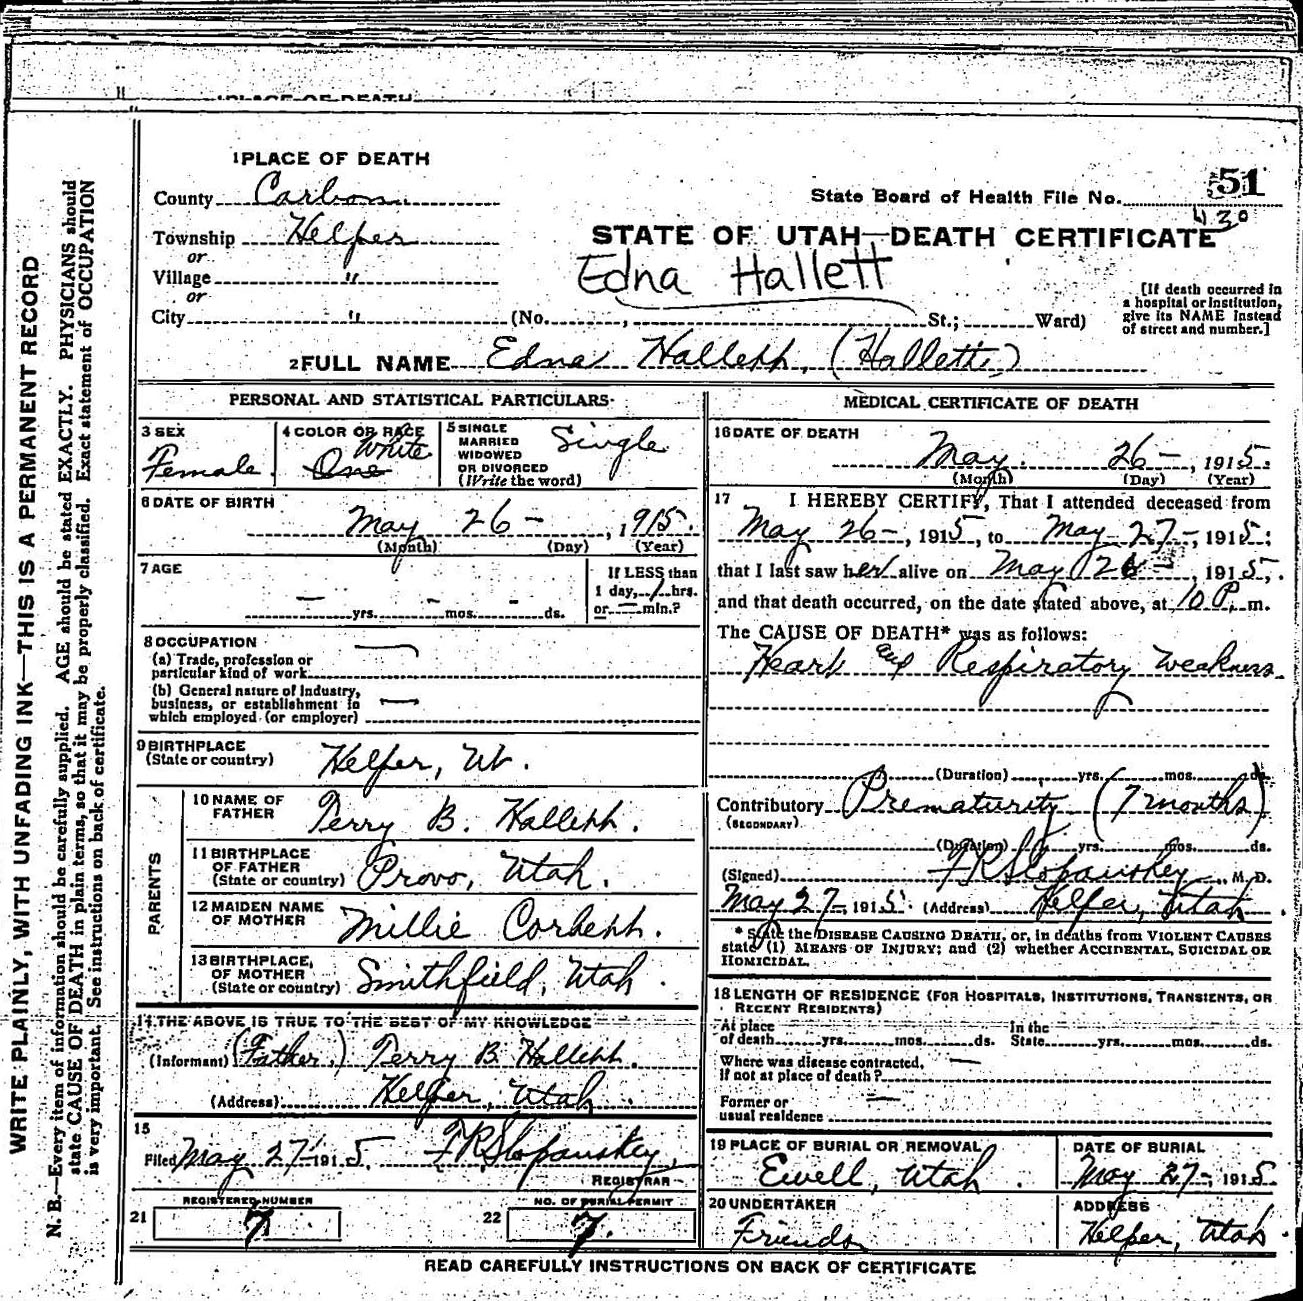 1 PLACE OF DEATH
51
County Carbon
State Board of Health File No.
430
Township Helper
STATE OF UTAH—DEATH CERTIFICATE
or
Edna Hallett
Village "
or
[If death occurred in a hospital or institution, give its NAME instead of street and number.]
City " (No. , St.; Ward)
2 FULL NAME Edna Hallett, (Hallett)
PERSONAL AND STATISTICAL PARTICULARS
3 SEX
Female.
4 COLOR OR RACE
White
One
5 SINGLE
MARRIED
WIDOWED
OR DIVORCED
(Write the word)
Single
6 DATE OF BIRTH
May 26 – , 1915.
(Month) (Day) (Year)
7 AGE
– yrs. – mos. – ds.
If LESS than
1 day, 1 hrs.
or – min.?
8 OCCUPATION
(a) Trade, profession or
particular kind of work —
(b) General nature of Industry,
business, or establishment in
which employed (or employer) —
9 BIRTHPLACE
(State or country) Helper, Ut.
PARENTS
10 NAME OF
FATHER
Perry B. Hallett.
11 BIRTHPLACE
OF FATHER
(State or country) Provo, Utah.
12 MAIDEN NAME
OF MOTHER Millie Corbett.
13 BIRTHPLACE,
OF MOTHER
(State or country) Smithfield, Utah.
14 THE ABOVE IS TRUE TO THE BEST OF MY KNOWLEDGE
(Informant) (Father.) Perry B. Hallett.
(Address) Helper, Utah.
15
Filed May 27 1915. F R Slopanskey,
REGISTRAR
REGISTERED NUMBER
21 7
NO. OF BURIAL PERMIT
22 7.
MEDICAL CERTIFICATE OF DEATH
16 DATE OF DEATH
May. 26 – , 1915.
(Month) (Day) (Year)
17 I HEREBY CERTIFY, That I attended deceased from
May 26 –, 1915, to May 27 –, 1915;
that I last saw her alive on May 26 – , 1915,
and that death occurred, on the date stated above, at 10 P. m.
The CAUSE OF DEATH* was as follows:
Heart and Respiratory Weakness
(Duration) yrs. mos. ds.
Contributory Prematurity (7 months)
(SECONDARY)
(Duration) yrs. mos. ds.
(Signed) F R Slopanskey, M. D.
May 27 –, 1915. (Address) Helper, Utah.
* State the DISEASE CAUSING DEATH, or, in deaths from VIOLENT CAUSES
state (1) MEANS OF INJURY; and (2) whether ACCIDENTAL, SUICIDAL OR
HOMICIDAL.
18 LENGTH OF RESIDENCE (FOR HOSPITALS, INSTITUTIONS, TRANSIENTS, OR
RECENT RESIDENTS)
At place In the
of death yrs. mos. ds. State yrs. mos. ds.
Where was disease contracted, —
If not at place of death?
Former or —
usual residence
19 PLACE OF BURIAL OR REMOVAL
Ewell, Utah.
DATE OF BURIAL
May 27 –, 1915.
20 UNDERTAKER
Friends
ADDRESS
Helper, Utah.
READ CAREFULLY INSTRUCTIONS ON BACK OF CERTIFICATE
WRITE PLAINLY, WITH UNFADING INK—THIS IS A PERMANENT RECORD
N. B.—Every item of information should be carefully supplied. AGE should be stated EXACTLY. PHYSICIANS should
state CAUSE OF DEATH in plain terms, so that it may be properly classified. Exact statement of OCCUPATION
is very important. See instructions on back of certificate.